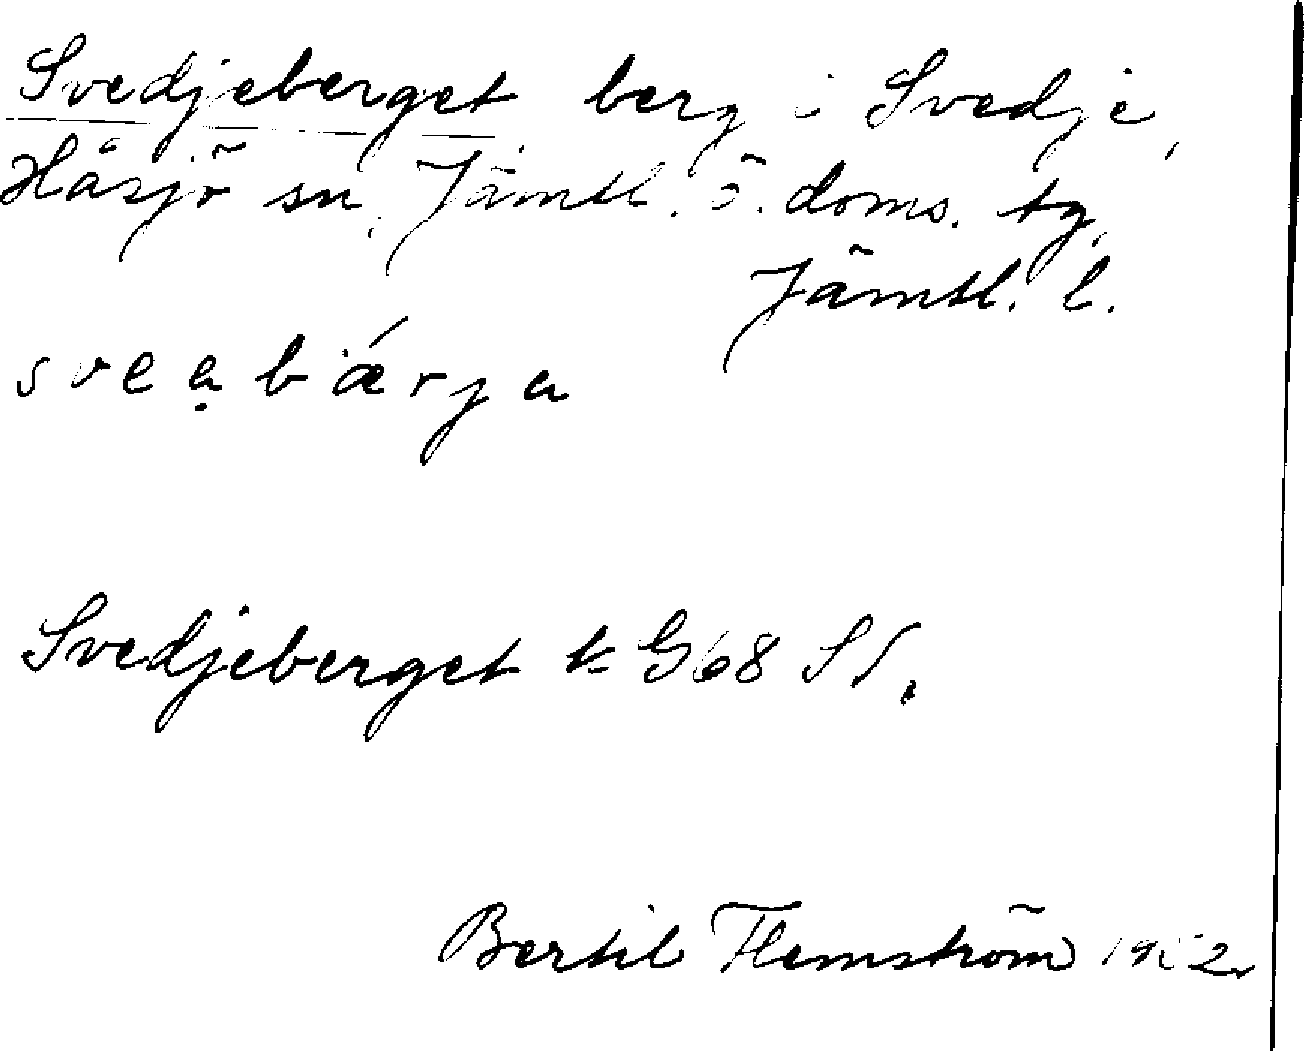 Svedjeberget berg i Svedje,
Håsjö sn, Jämtl. ö. doms. tg,
Jämtl. l.
sveạbǽrja
Svedjeberget k G68 SV.
Bertil Flemström